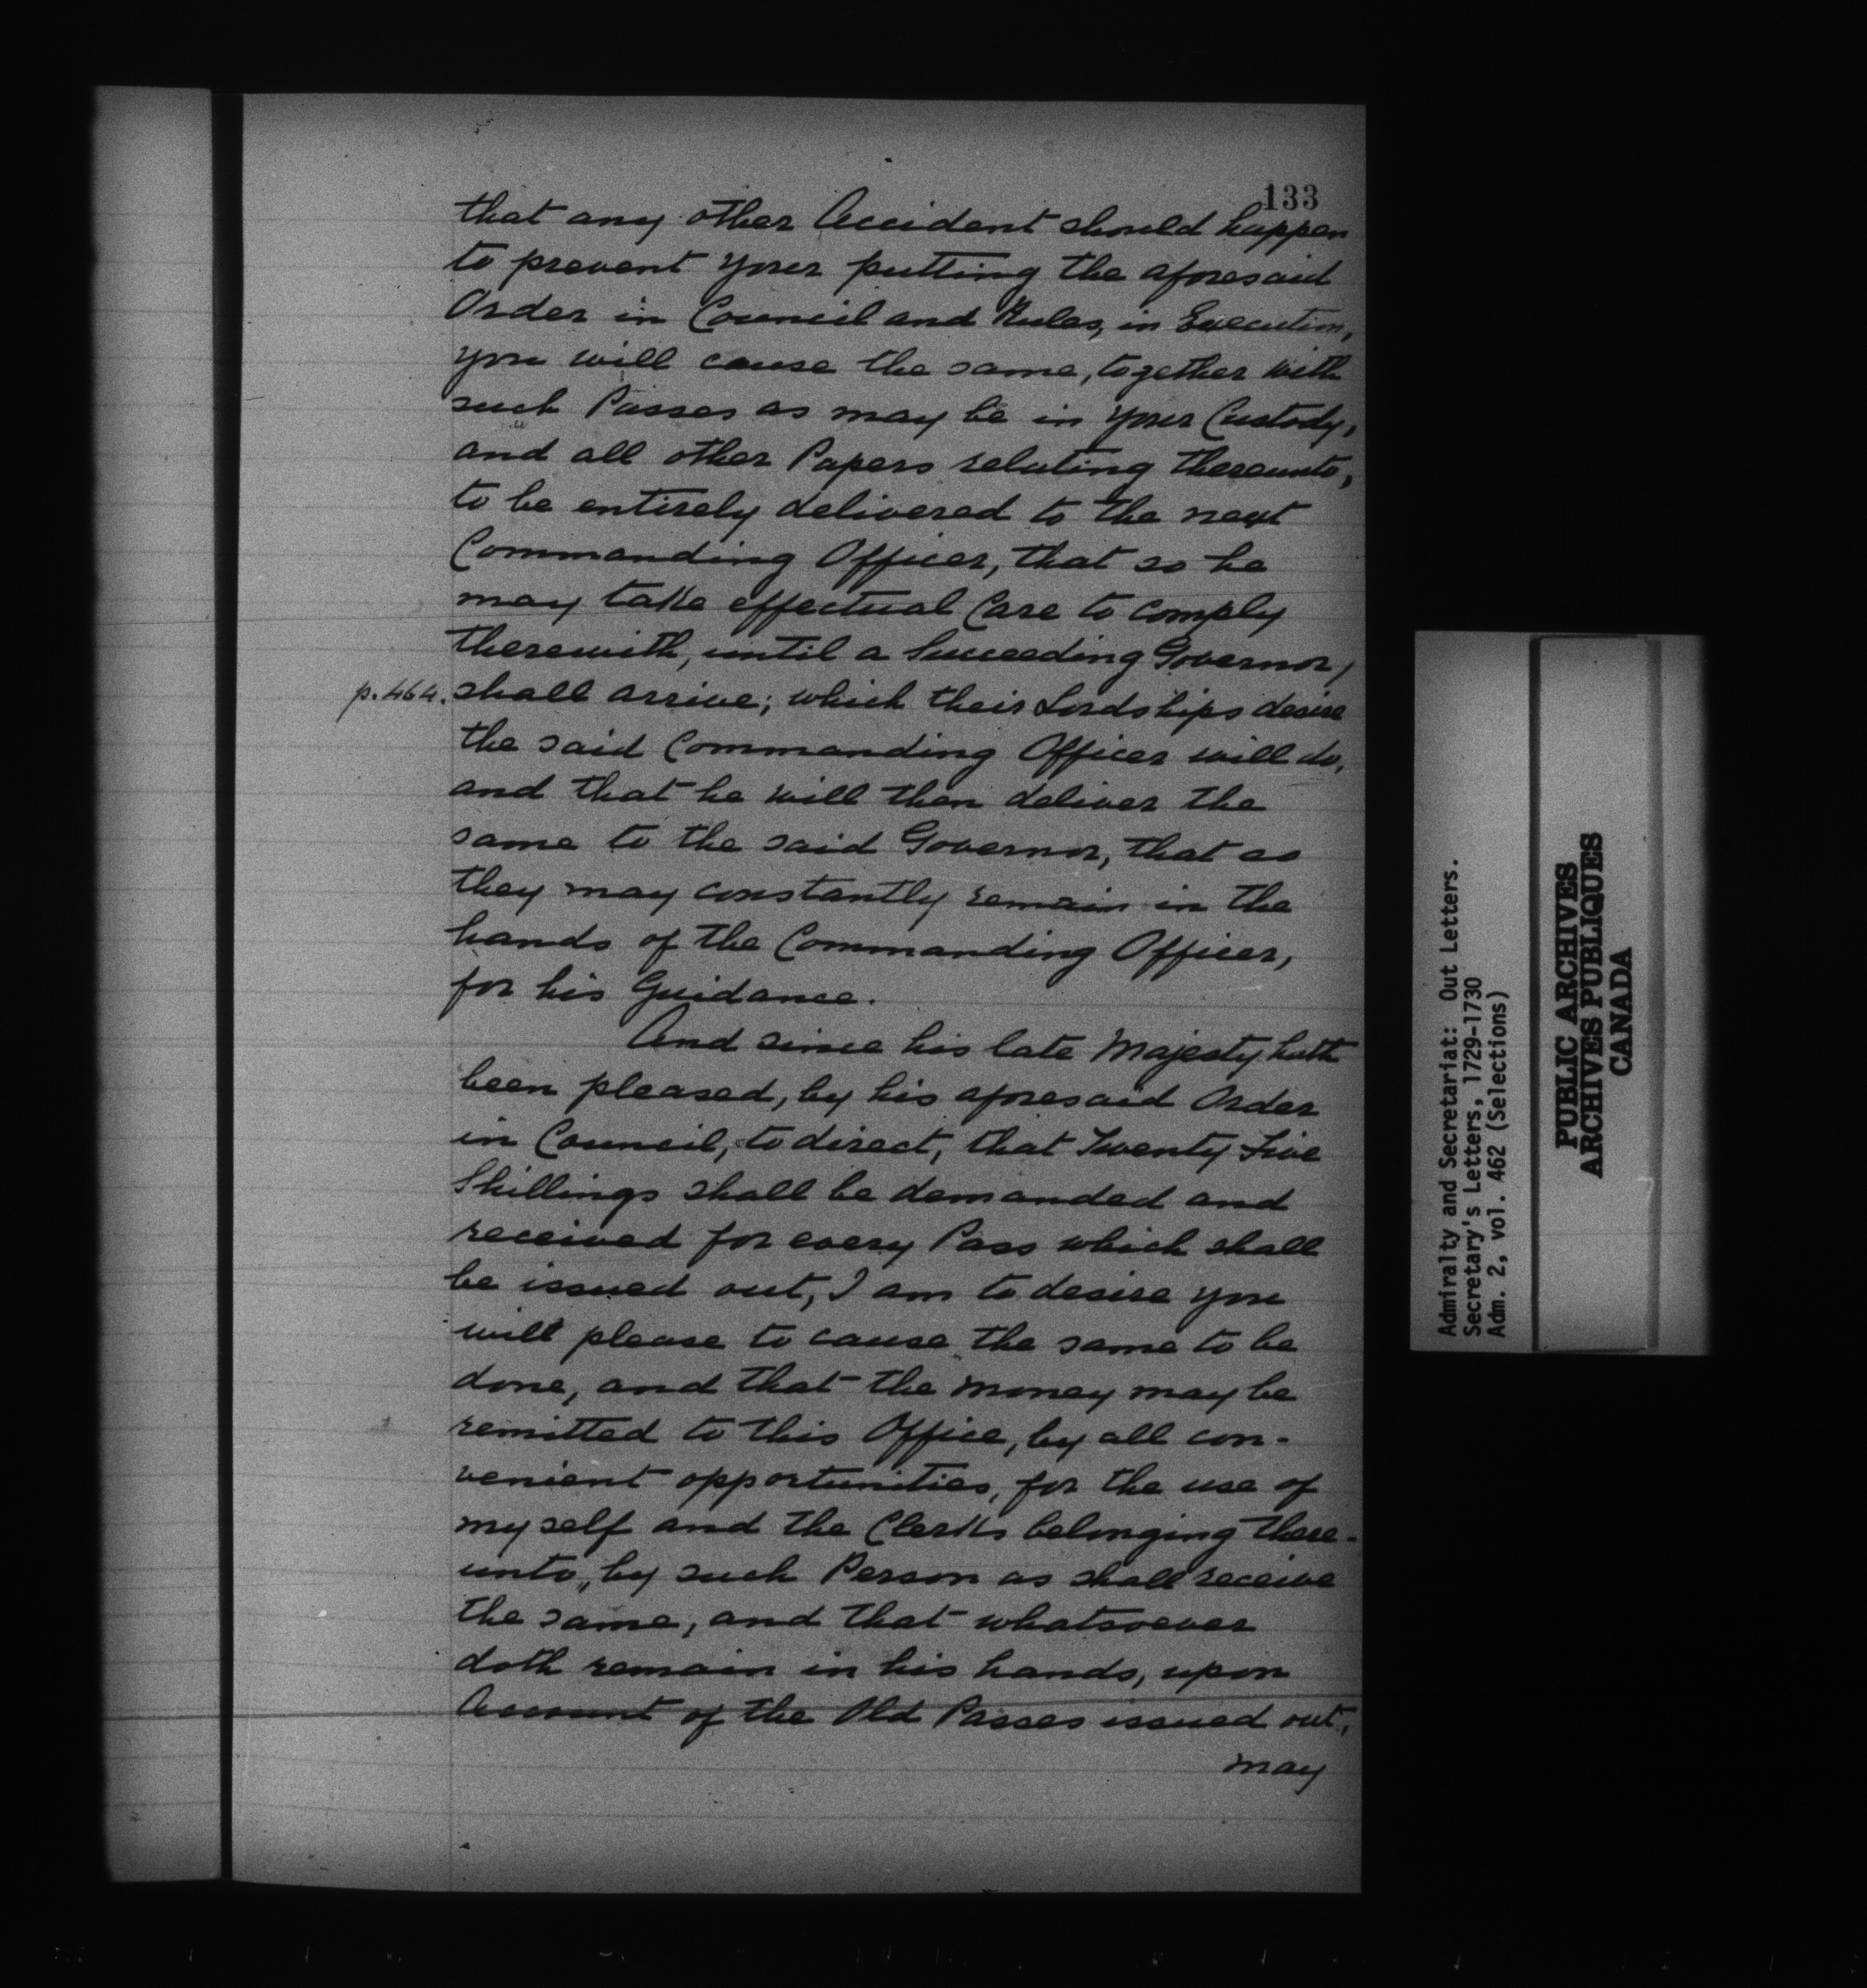 133
that any other Accident should happen
to prevent your putting the aforesaid
Order in Council and Rules, in Execution,
you will cause the same, together with
such Passes as may be in your Custody,
and all other Papers relating thereunto,
to be entirely delivered to the next
Commanding Officer, that so he
may take effectual Care to comply
therewith, until a Succeeding Governor,
p.464. shall arrive; which their Lordships desire
the said Commanding Officer will do,
and that he will then deliver the
same to the said Governor, that so
they may constantly remain in the
hands of the Commanding Officer,
for his Guidance.
And since his late Majesty hath
been pleased, by his aforesaid Order
in Council, to direct, that Twenty Five
Shillings shall be demanded and
received for every Pass which shall
be issued out, I am to desire you
will please to cause the same to be
done, and that the money may be
remitted to this Office, by all con-
venient opportunities, for the use of
myself and the Clerks belonging there-
unto, by such Person as shall receive
the same, and that whatsoever
doth remain in his hands, upon
Account of the Old Passes issued out,
may
Admiralty and Secretariat: Out Letters.
Secretary's Letters, 1729-1730
Adm. 2, vol. 462 (Selections)
PUBLIC ARCHIVES
ARCHIVES PUBLIQUES
CANADA